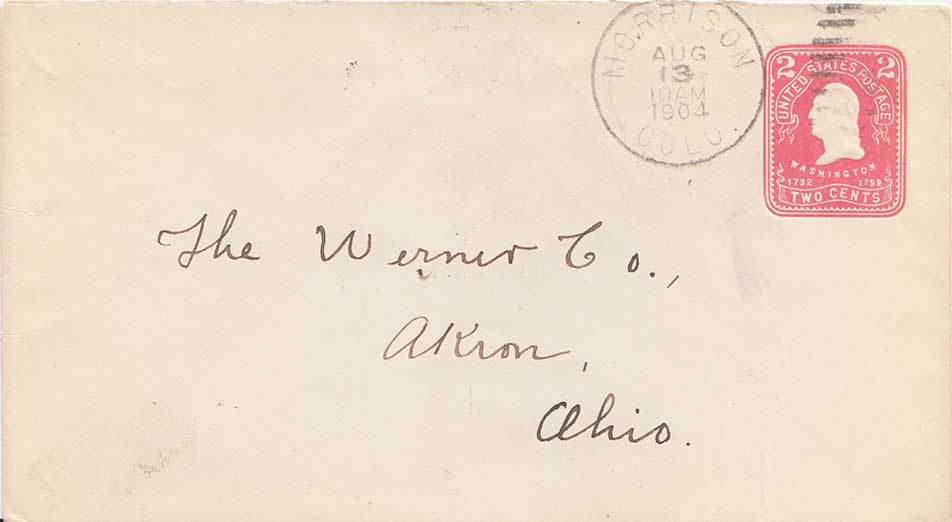 MORRISON
AUG
13
10AM
1904
COLO.
2 2
UNITED STATES POSTAGE
WASHINGTON
1732 1799
TWO CENTS
The Werner Co.,
Akron,
Ohio.